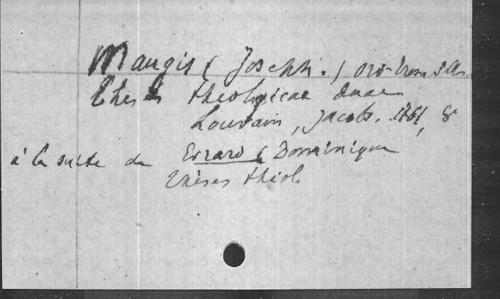 Maugis (Joseph.)
Theses theologicae duae
Louvain, Jacobs. 1761, 8°
à la suite de Evrard (Dominique
Thèses théol.